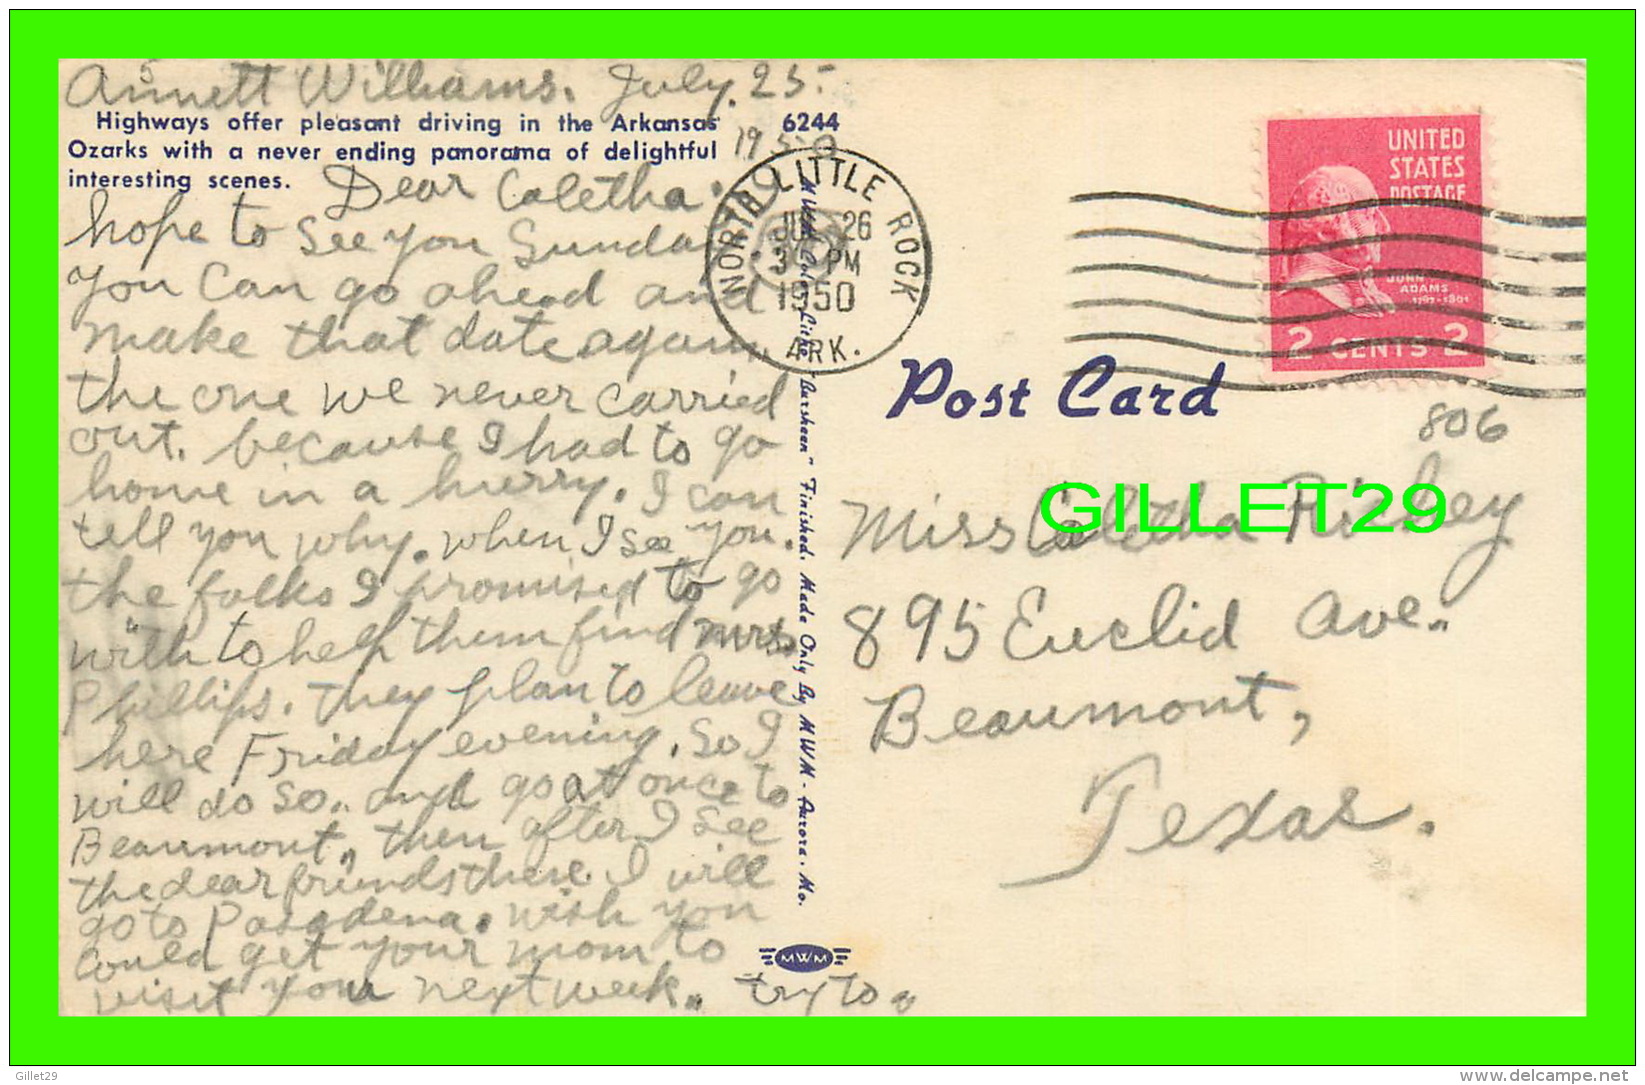 Annett Williams. July. 25.
1950
Highways offer pleasant driving in the Arkansas
Ozarks with a never ending panorama of delightful
interesting scenes.
6244
Dear Caletha.
hope to see you Sunday
you can go ahead and
make that date again,
the one we never carried
out. because I had to go
home in a hurry. I can
tell you why. when I see you.
the folks I promised to go
with to help them find Mrs.
Phillips. they plan to leave
here Friday evening. So I
will do so. and go at once to
Beaumont, then after I see
the dear friends there. I will
go to Pasadena. wish you
could get your mom to
visit you next week. try to.
NORTH LITTLE ROCK
JUL 26
3 PM
1950
ARK.
"Bursheen" Finished. Made Only By MWM - Aurora, Mo.
MWM
UNITED
STATES
POSTAGE
JOHN
ADAMS
1797-1801
2 CENTS 2
Post Card
806
GILLET29
Miss Caletha Richey
895 Euclid Ave.
Beaumont,
Texas.
Gillet29
www.delcampe.net